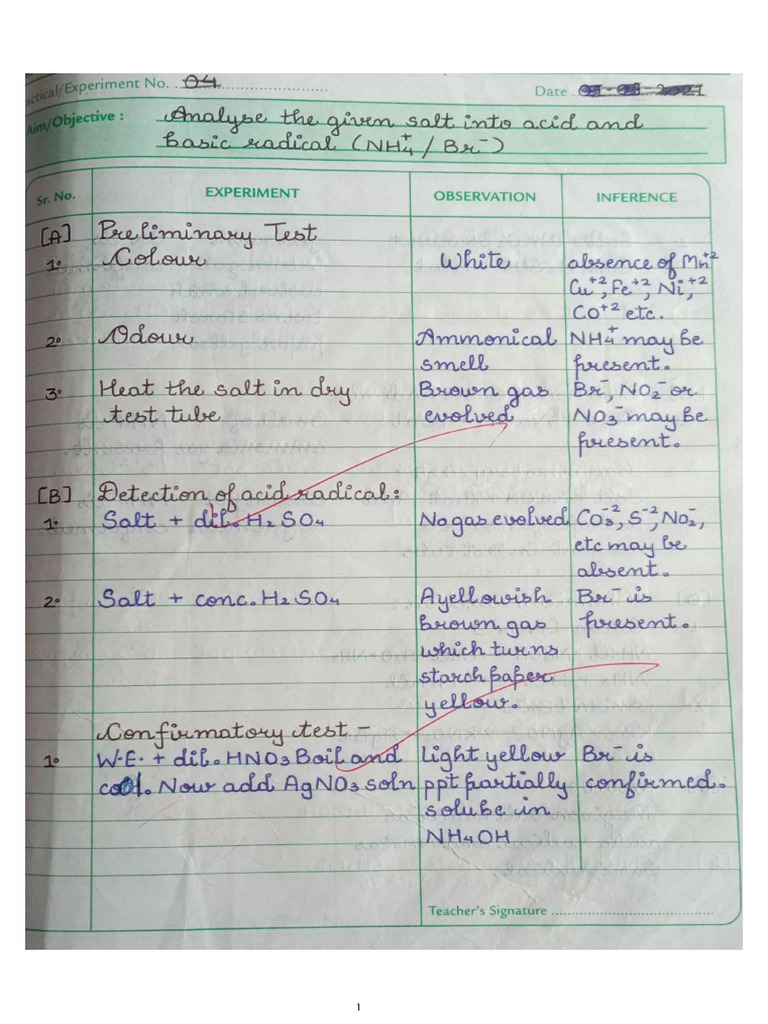 Practical/Experiment No. 04
Date 03-03-2021
Aim/Objective : Analyse the given salt into acid and
basic radical (NH4+ / Br-)
Sr. No. EXPERIMENT OBSERVATION INFERENCE
[A] Preliminary Test
1. Colour White absence of Mn+2
Cu+2, Fe+2, Ni+2,
Co+2 etc.
2. Odour Ammonical NH4+ may be
smell present.
3. Heat the salt in dry Brown gas Br-, NO2- or
test tube evolved NO3- may be
present.
[B] Detection of acid radical:
1. Salt + dil. H2SO4 No gas evolved CO3-2, S-2, NO2-,
etc may be
absent.
2. Salt + conc. H2SO4 A yellowish Br- is
brown gas present.
which turns
starch paper
yellow.
Confirmatory test -
1. W.E. + dil. HNO3 Boil and Light yellow Br- is
cool. Now add AgNO3 soln ppt partially confirmed.
solube in
NH4OH
Teacher's Signature
1